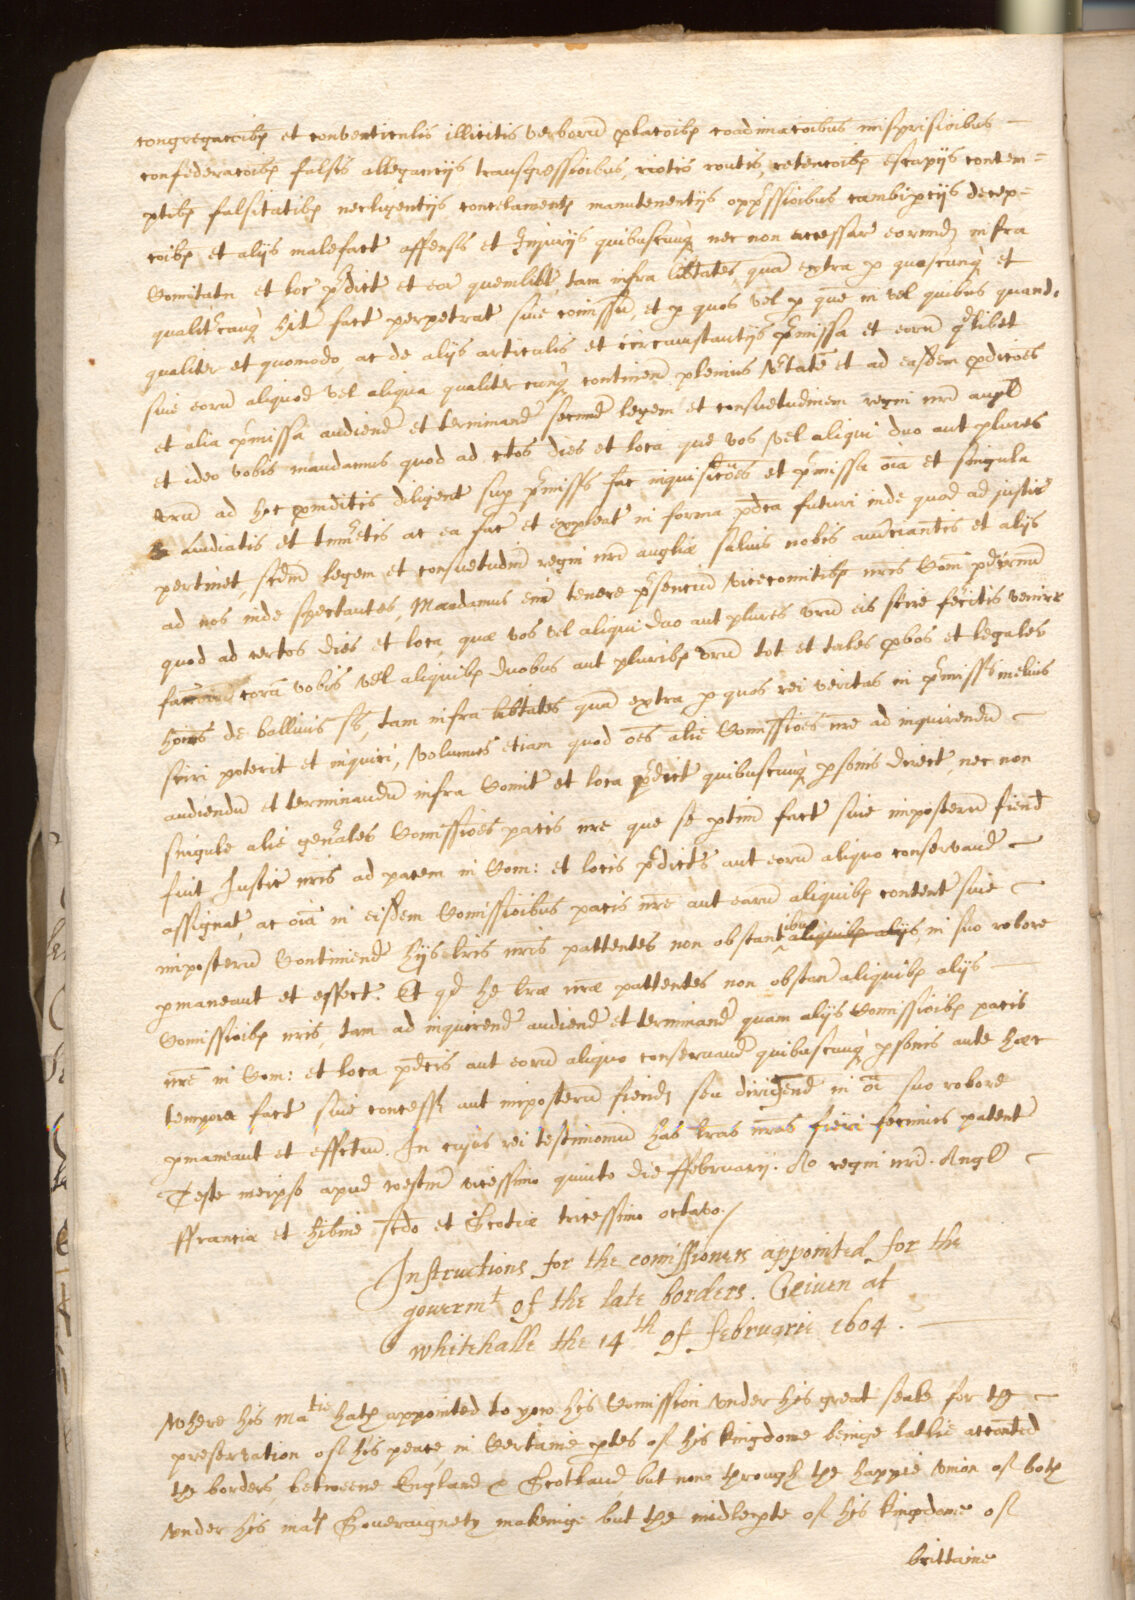 congregacoibz et conventiculis illicitis verborū placoibz coadinacoibus misprisioibus
confederacoibz falsis allegancijs transgressioibus, riotis routis, retencoibz escapijs contem=
ptibz falsitatibz necligentijs concelamentz manutenentijs oppressioibus cambipcijs decep=
coibz et alijs malefact offensis et Injurijs quibuscunqz nec non accessar eorundz infra
Comitatu et loc pdict et eor quemlibt, tam infra libtates quā extra p quoscunqz et
qualitcunqz hit fact perpetrat sive comissū, et p quos vel p que in vel quibus quand.
qualiter et quomodo, ac de alijs articulis et circumstantijs pmissa et eorū qdlibet
sive eorū aliquod vel aliqua qualiter cunqz continen plenius vtate et ad easdem pdicoes
et alia pmissa audiend et terminand secund legem et consuetudinem regni nrī angl
et ideo vobis mandamus quod ad ctos dies et loca que vos vel aliqui duo aut plures
vrū ad hoc pmditis diligent sup pmissis fac inquisicoes et pmissa oīa et singula
audiatis et tminetis ac ea fac et expleat in forma pdca futuri inde quod ad justic
pertinet, scdm legem et consuetudinē regni nrī angliæ salvis nobis amciantis et alijs
ad nos inde spectantes, Mandamus eni tenere psenciū vicecomitibz nris Com pdictmū
quod ad certos dies et loca, quæ vos vel aliqui duo aut plures vrū eis scire fecitis venire
corā vobis vel aliquibz duobus aut pluribz vrū tot et tales pbos et legales
hoies de ballivis sūs, tam infra libtates quā extra p quos rei veritas in pmissis melius
sciri poterit et inquiri, volumus etiam quod oēs alie Comissioēs nre ad inquirendū
audiendū et terminandū infra Comit et loca pdict quibuscunqz psonis direct, nec non
singule alie gen̄ales Comissioēs pacis nre que se ptim fact sive imposterū fiend
fuit Justic nris ad pacem in Com: et locis pdictis aut eorū aliquo conservand
assignat, ac oīa in eisdem Comissioibus pacis nre aut earū aliquibz content sive
imposterū Continend hijs lris nris pattentes non obstantibus aliquibz alijs, in suo robore
pmaneant et effect. Et qd he lræ nræ pattentes non obstan aliquibz alijs
Comissioibz nris, tam ad inquirend audiend et terminand quam alijs Comissioibz pacis
nre in Com: et loca pdcis aut eorū aliquo conservand quibuscunqz psonis ante hæc
tempora fact sive concess aut imposterū fiendz seu dirigend in oī suo robore
pmaneant et effctū. In cujus rei testimoniū has lras nras fieri fecimus patent
Teste meipso apud westm vicessimo quinto die ffebruarij. Ao regni nrī. Angl
ffrancia et hibnie scdo et Scotiæ tricessimo octavo./
Instructions for the comissioners appointed for the
govermt of the late borders. Geiuen at
whitehalle the 14th of februarie 1604.
Where his Matie hath appointed to yow his Comission vnder his great seale for the
preservation of his peace, in Certaine ptes of his kingdome beinge latlie accounted
the borders, betweene England & Scotland, but now through the happie vnion of both
vnder his matz Soveraignety makeinge but the midle pte of his kingdome of
brittaine